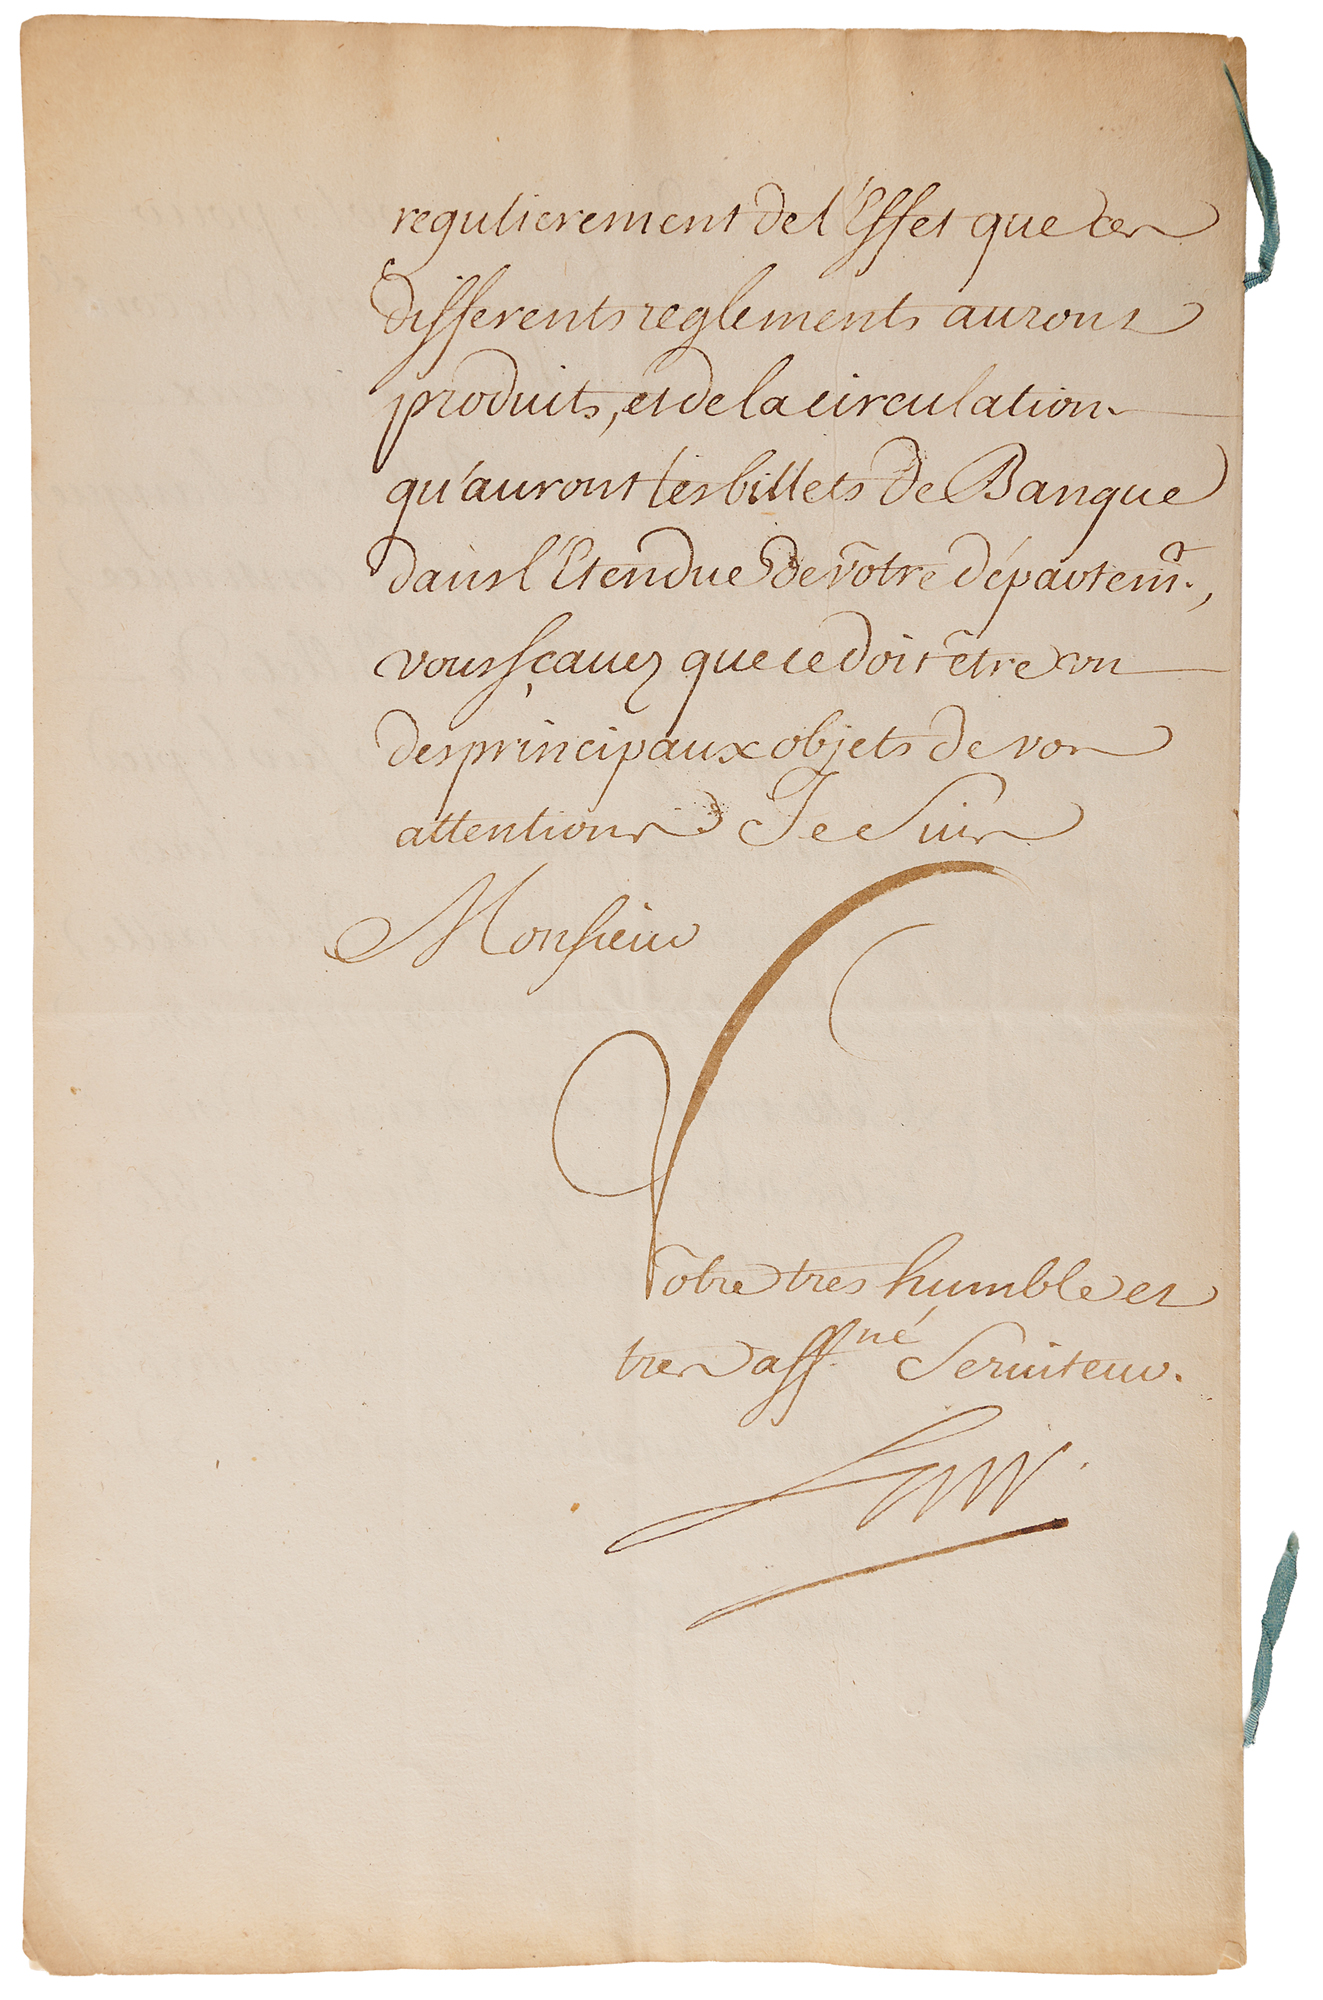 regulierement de l'Effet que ces
differents reglements auront
produits, et de la circulation
qu'auront les billets de Banque
dans l'Etendue de vôtre départemt.,
vous sçauez que ce doit être vn
des principaux objets de vos
attentions Je suis
Monsieur
Vôtre tres humble et
tres aff.né Seruiteur.